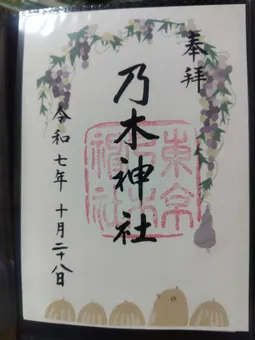 奉拝
乃木神社
令和七年 十月二十八日